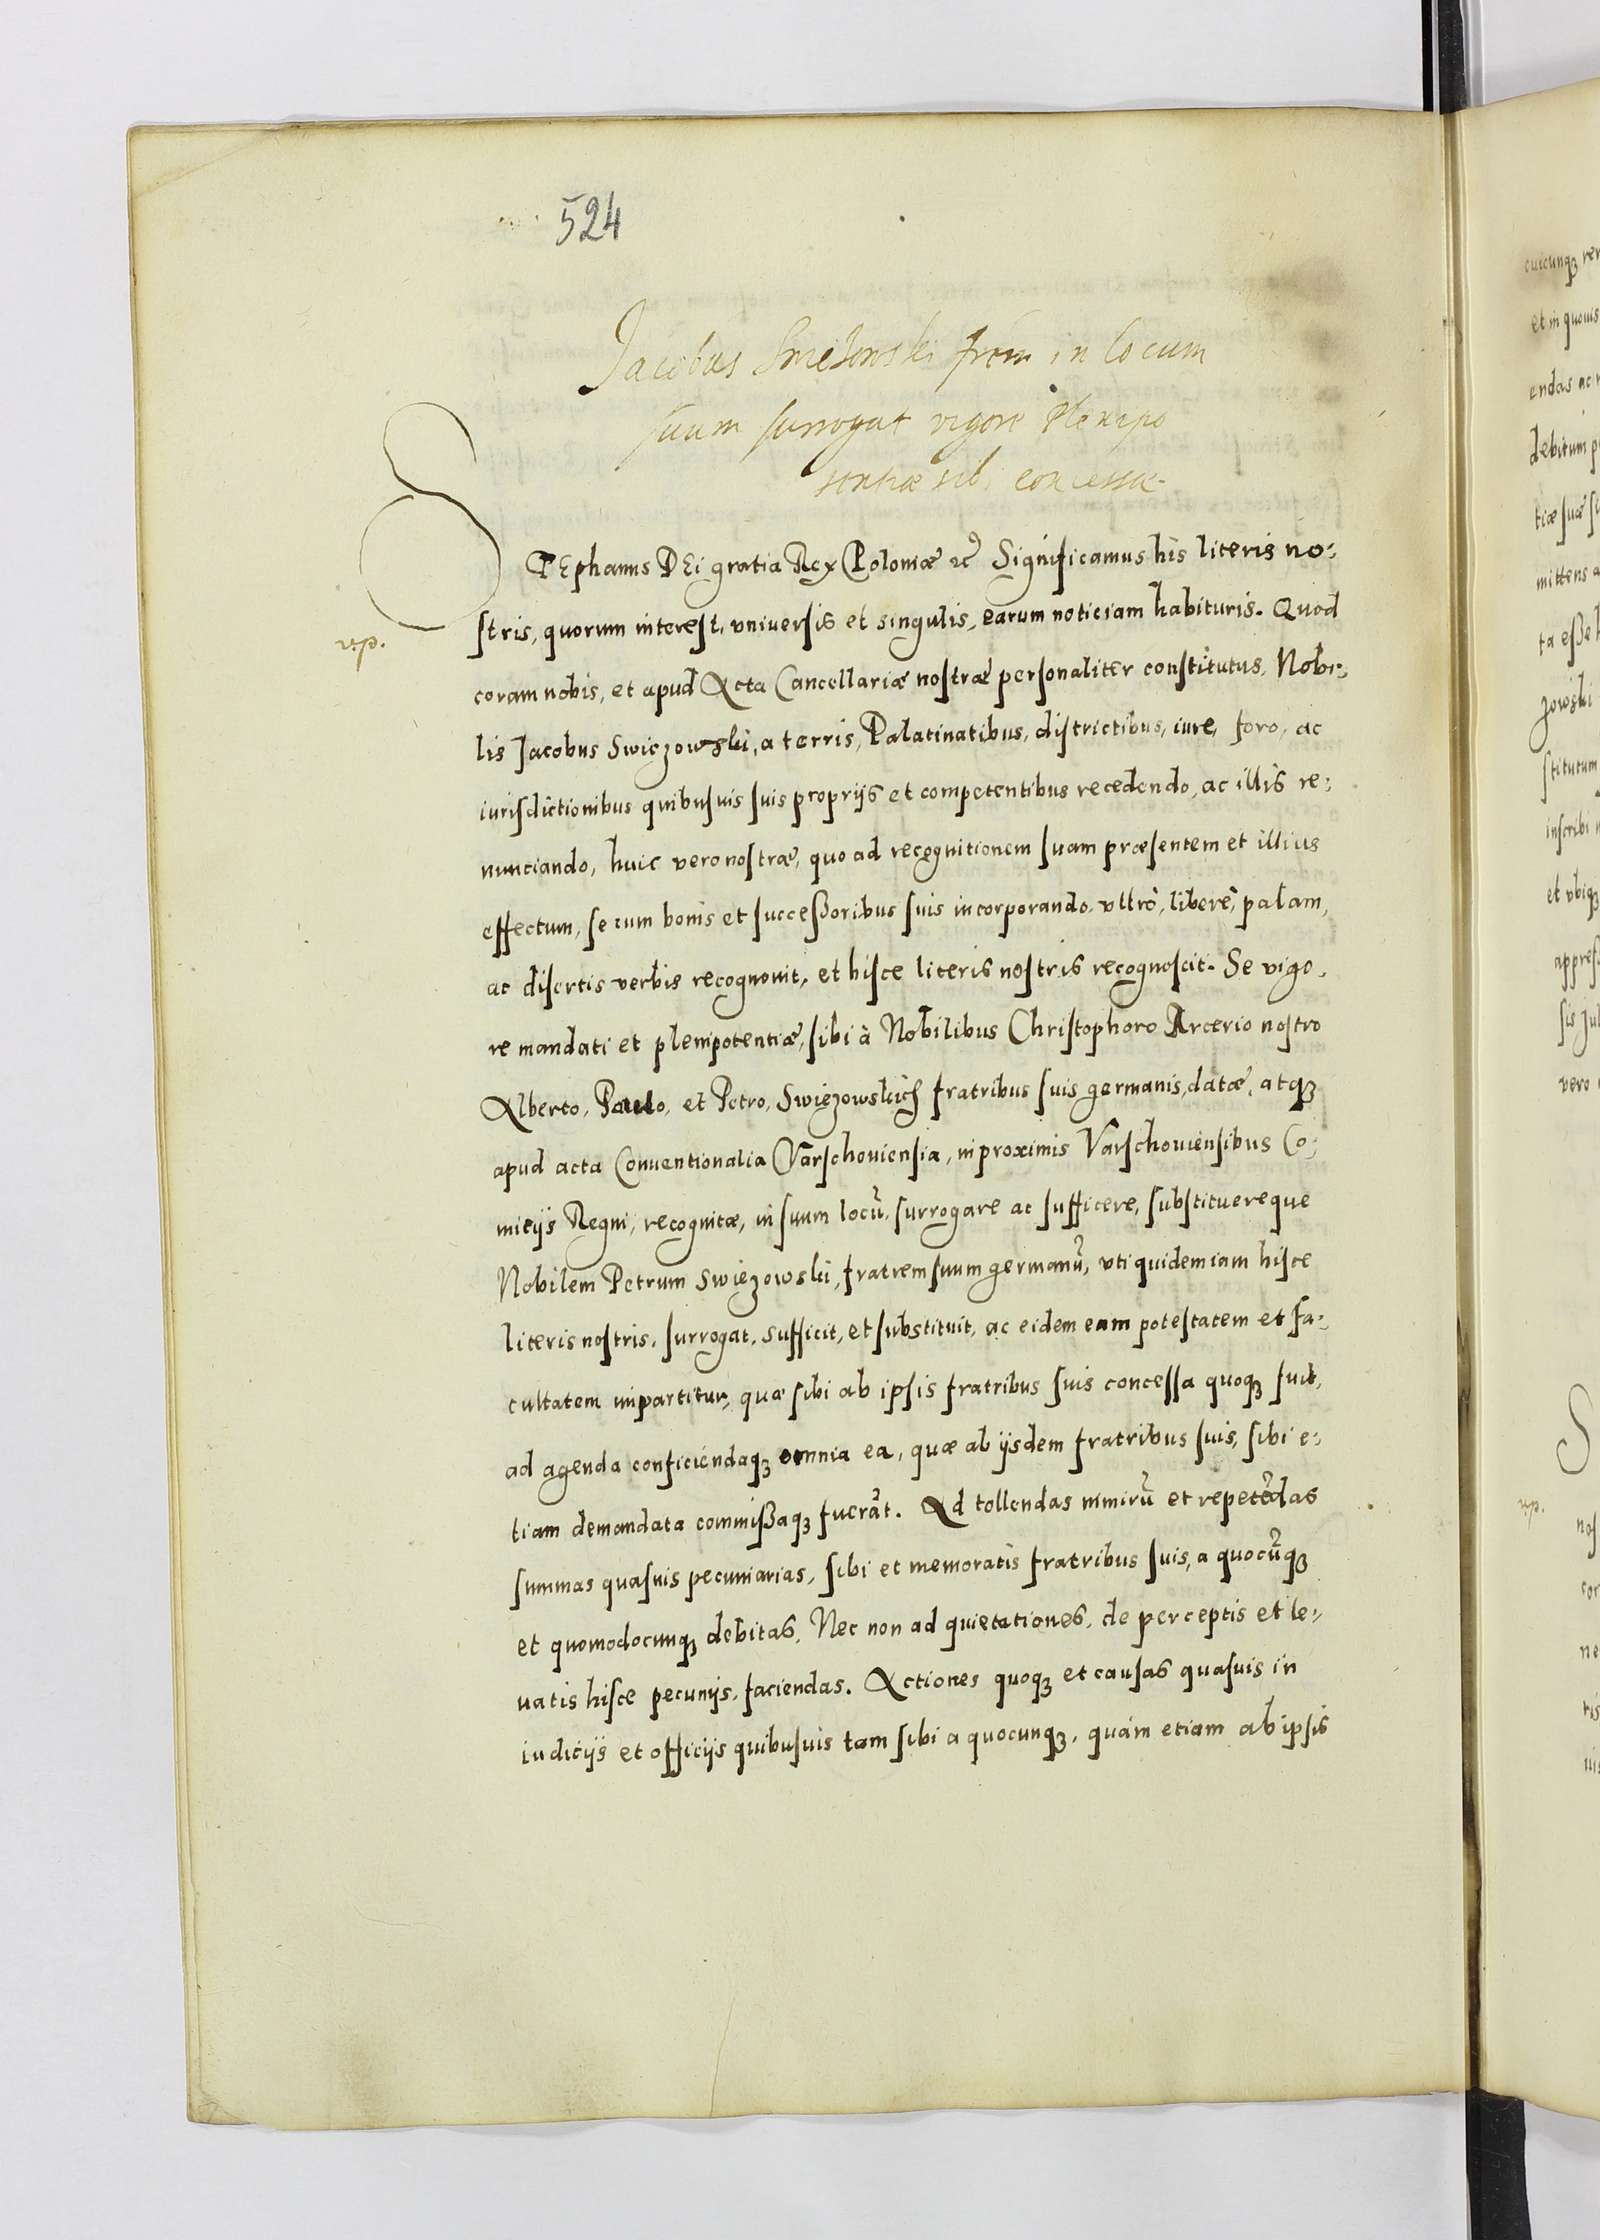 524
Jacobus Swiezowski frem in locum
suum surrogat vigore Plenipo
tentiæ sibi concessæ.
STEphanus DEi gratia Rex Poloniæ ꝛc̃ Significamus his literis no-
stris, quorum interest, vniuersis et singulis, earum noticiam habituris. Quod
coram nobis, et apud Acta Cancellariæ nostræ personaliter constitutus, Nobi-
lis Jacobus Swięzowski, a terris, Palatinatibus, districtibus, iure, foro, ac
iurisdictionibus quibusuis suis proprijs et competentibus recedendo, ac illis re-
nunciando, huic vero nostræ, quo ad recognitionem suam præsentem et illius
effectum, se cum bonis et successoribus suis incorporando, vltrò, liberè, palam,
ac disertis verbis recognouit, et hisce literis nostris recognoscit. Se vigo-
re mandati et plenipotentiæ, sibi à Nobilibus Christophoro Arcerio nostro
Alberto, Paulo, et Petro, Swięzowskich fratribus suis germanis, datæ, atqꝫ
apud acta Conuentionalia Varschouiensia, in proximis Varschouiensibus Co-
mitijs Regni, recognitæ, in suum locũ, surrogare ac sufficere, substituereque
Nobilem Petrum Swięzowski, fratrem suum germanũ, vti quidem iam hisce
literis nostris, surrogat, sufficit, et substituit, ac eidem eam potestatem et fa-
cultatem impartitur, quæ sibi ab ipsis fratribus suis concessa quoqꝫ fuit,
ad agenda conficiendaqꝫ omnia ea, quæ ab ijsdem fratribus suis, sibi e-
tiam demandata commissaqꝫ fuerãt. Ad tollendas nimirũ et repetẽdas
summas quasuis pecuniarias, sibi et memoratis fratribus suis, a quocũqꝫ
et quomodocunqꝫ debitas, Nec non ad quietationes, de perceptis et le-
uatis hisce pecunijs, faciendas. Actiones quoqꝫ et causas quasuis in
iudicijs et officijs quibusuis tam sibi a quocunqꝫ, quám etiam ab ipsis